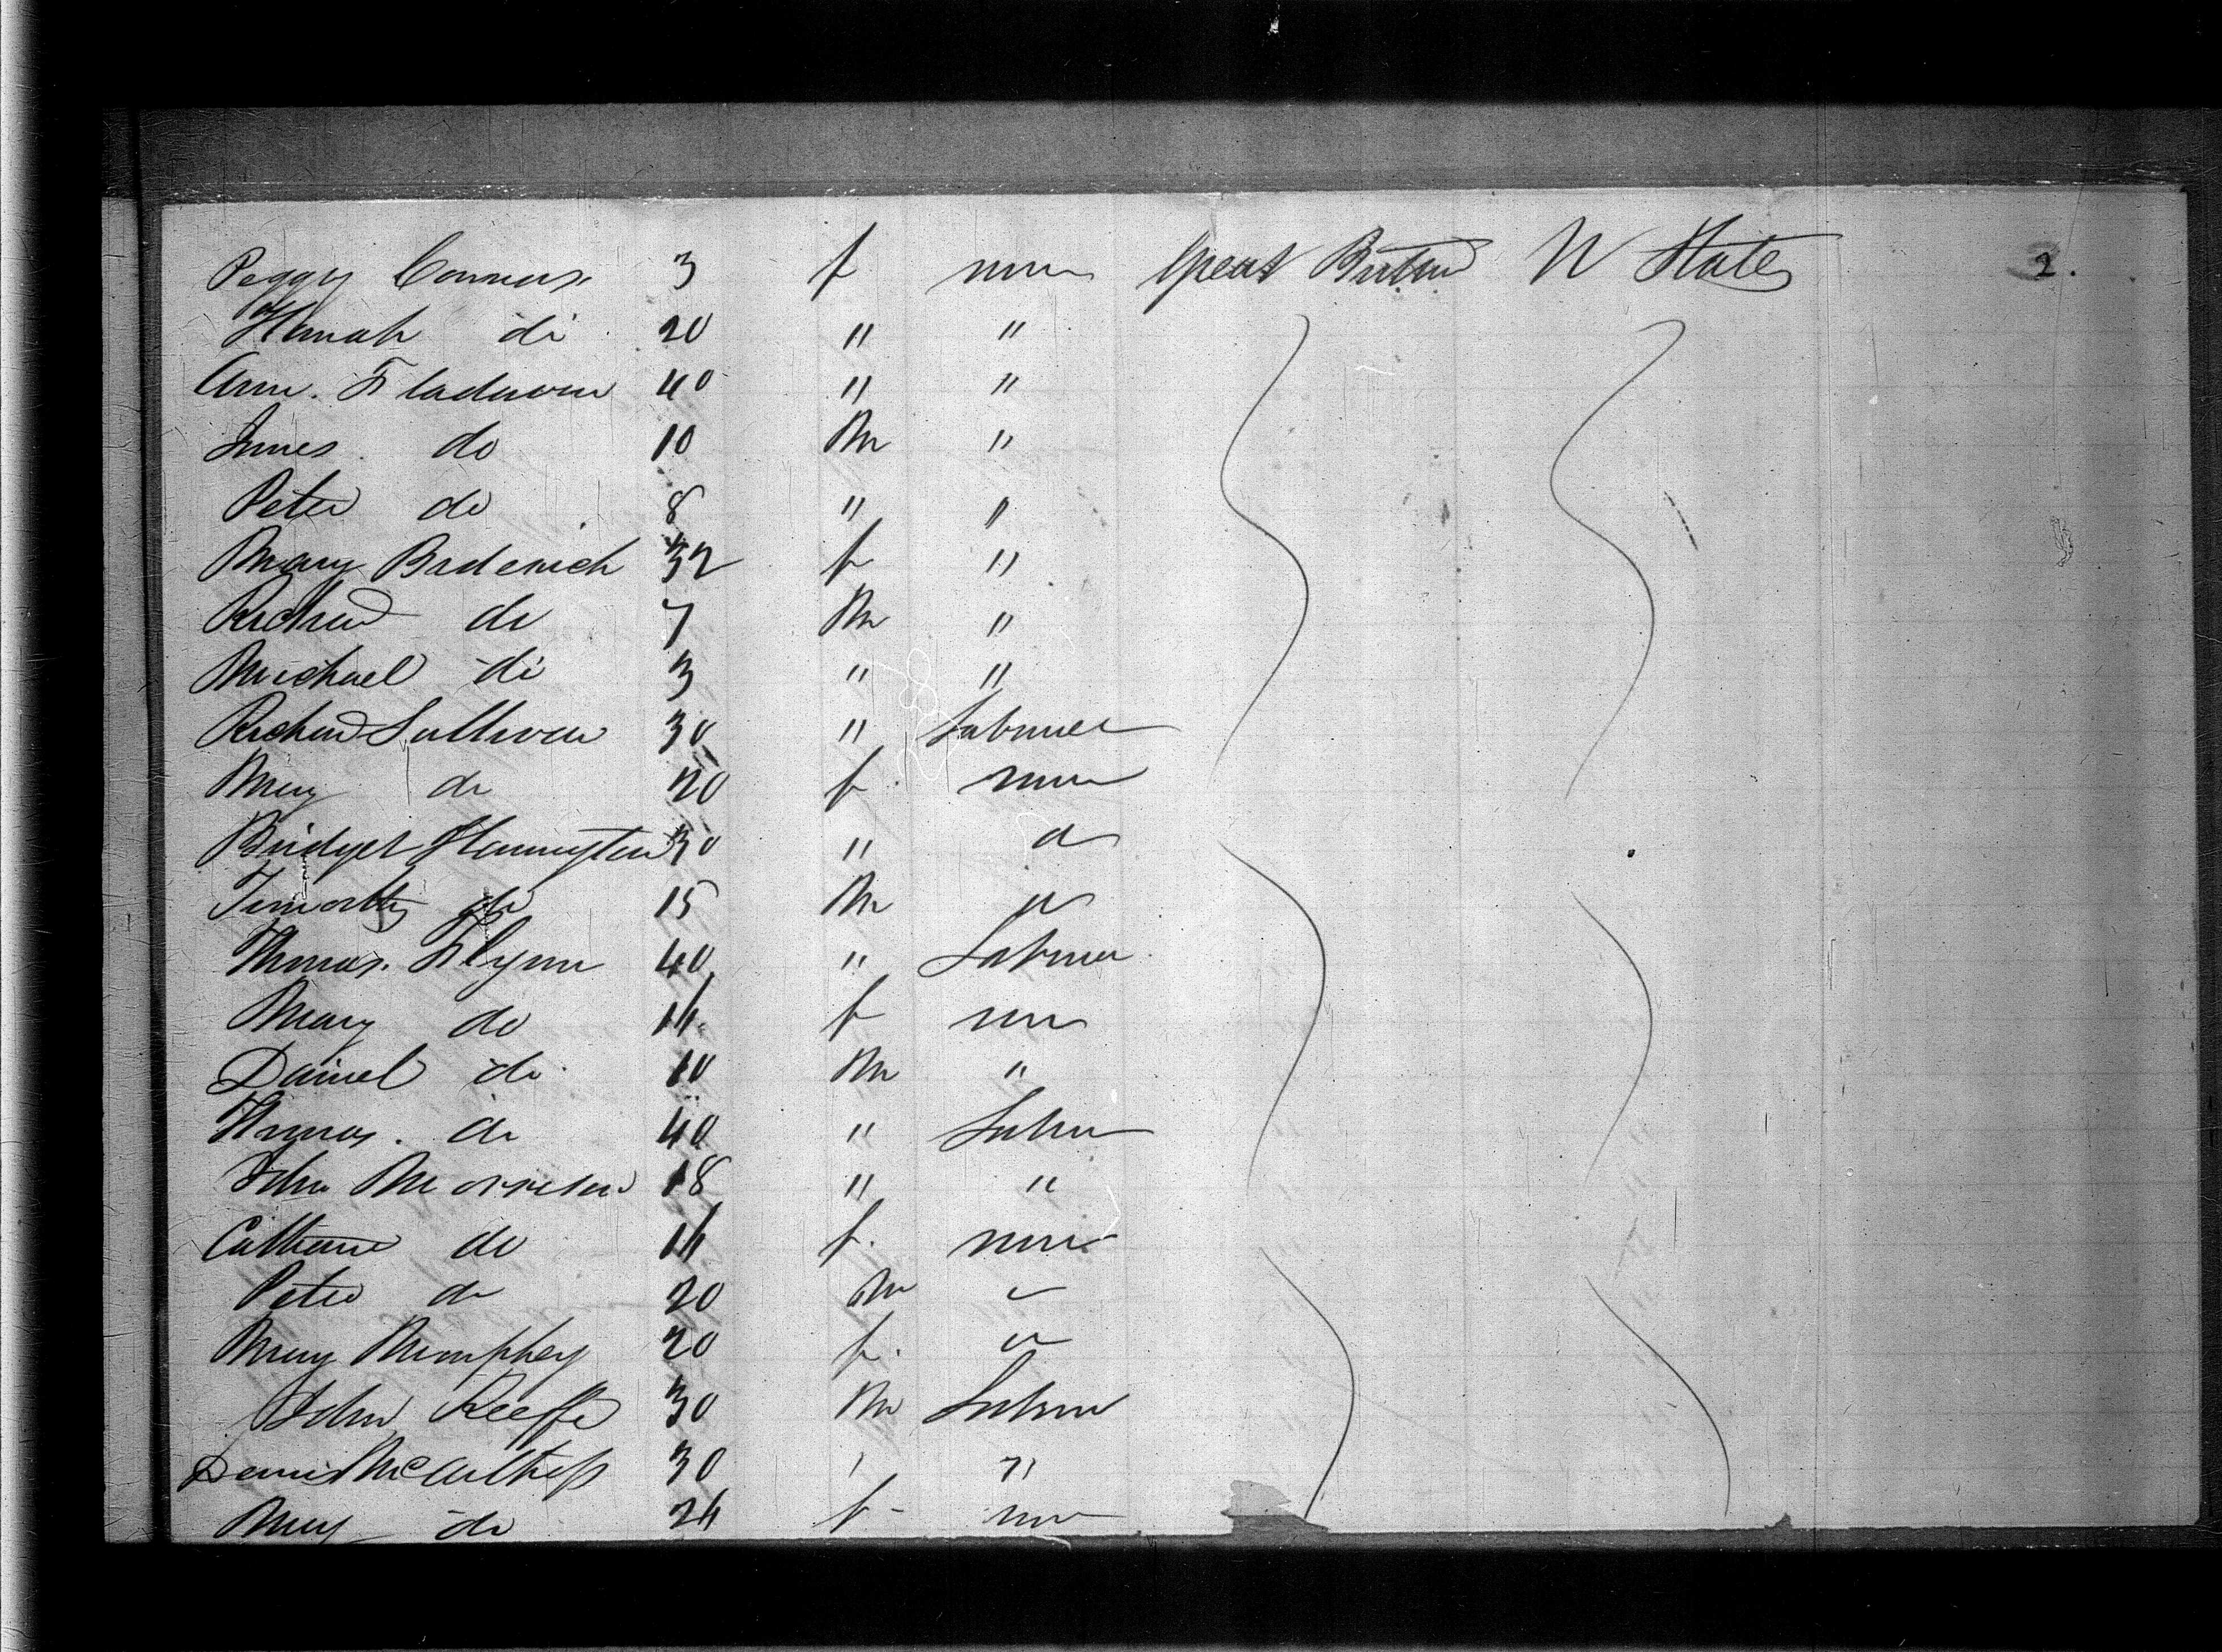 Peggy Connors 3 f none Great Britain U States 2.
Hanah do 20 " "
Ann 40 " "
James do 10 M "
Peter do 8 " "
Mary Broderick 32 f "
Richard do 7 M "
Michael do 3 " "
Richard Sullivan 30 " Labourer
Mary do 20 f none
Bridget Harrington 30 " "
Timothy do 15 M "
Thomas Flynn 40 " Labourer
Mary do 14 f none
Daniel do 10 M "
Thomas do 40 " Labourer
John Morrison 18 " "
Catharine do 14 f none
Peter do 20 M "
Mary Mumphey 20 f "
John Keeffe 30 M Labourer
Dennis 30 " "
Mary do 24 f none